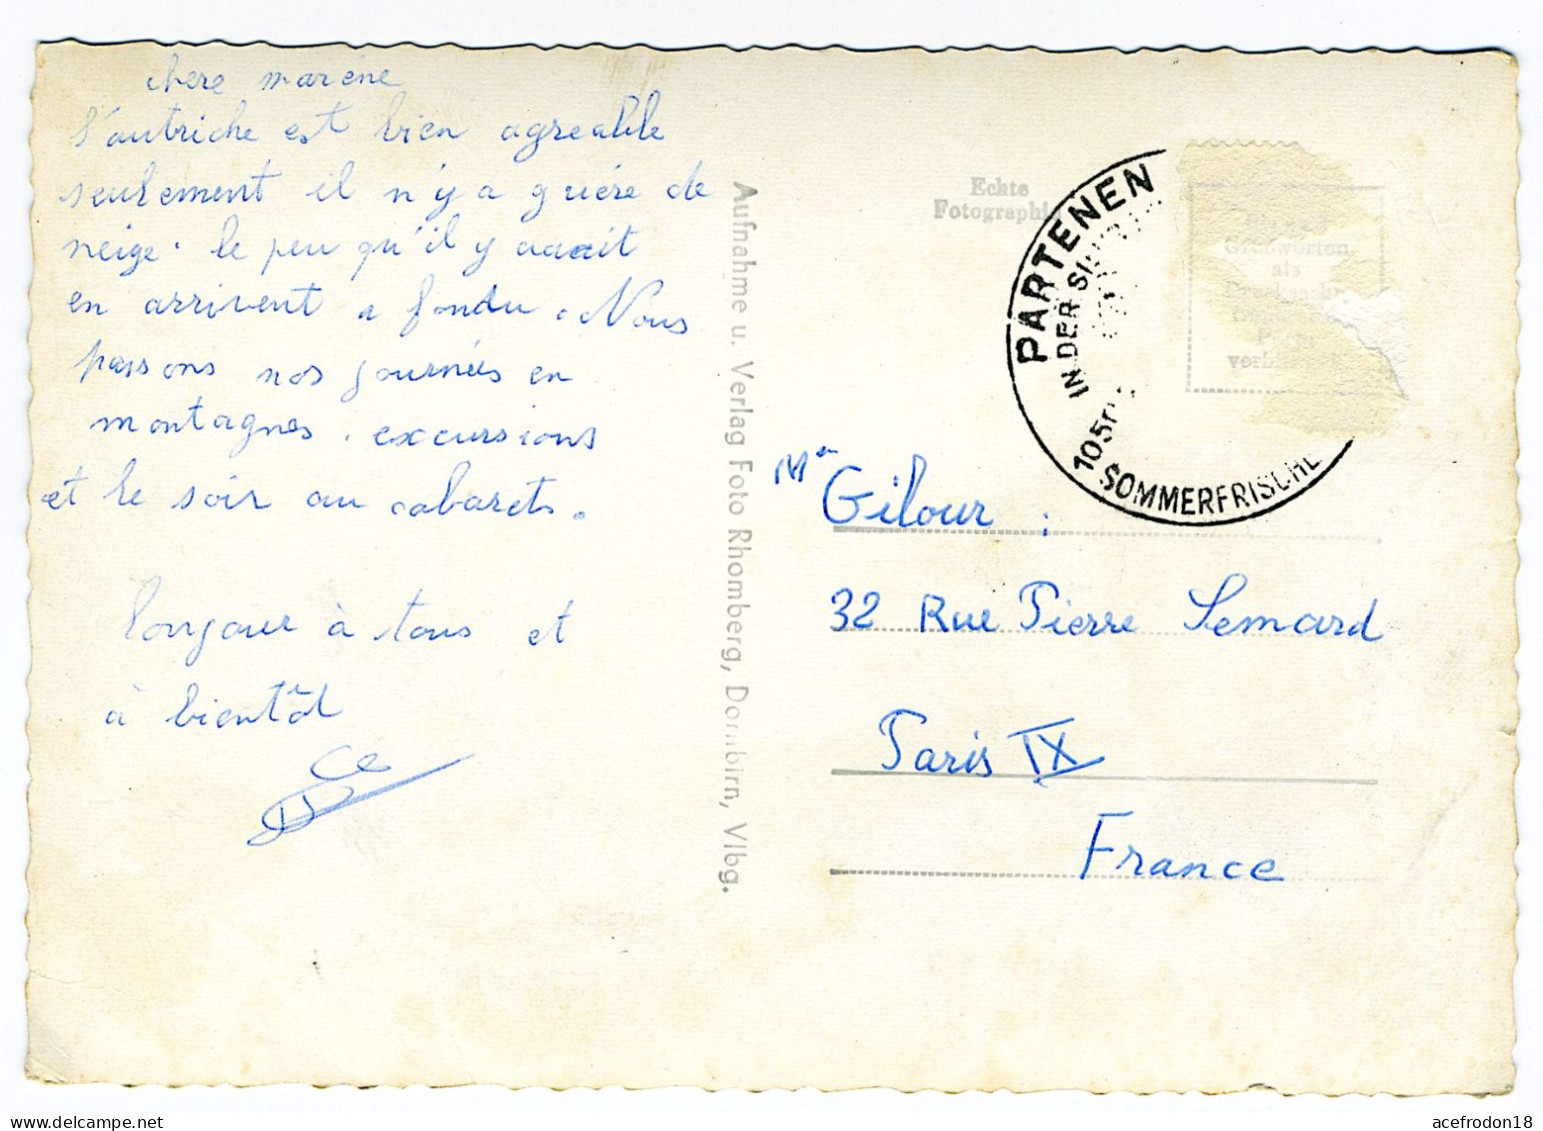 chere marène
l'autriche est bien agreable
seulement il n'y a guére de
neige. le peu qu'il y avait
en arrivent a fondu. Nous
passons nos journées en
montagnes. excursions
et le soir au cabarets.
bonjour à tous et
à bientôt
Aufnahme u. Verlag Foto Rhomberg, Dornbirn, Vlbg.
Echte
Fotographie
PARTENEN
IN DER
SOMMERFRISCHE
Gilour :
32 Rue Pierre Semard
Paris IX
France
acefrodon18
www.delcampe.net